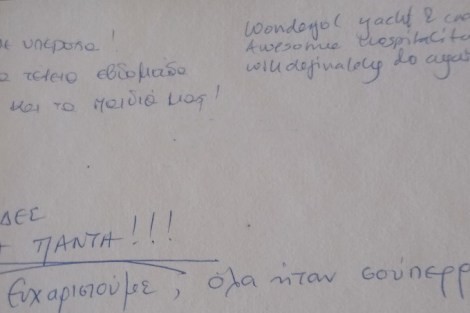 υπεροπα!
τέλειο εβδομάδα
και τα παιδιά μας!
wonderful yacht &
Awesome hospitality
will definately do again
ΔΕΣ
ΠΑΝΤΑ!!!
Ευχαριστούμε, όλα ήταν σούπερρ